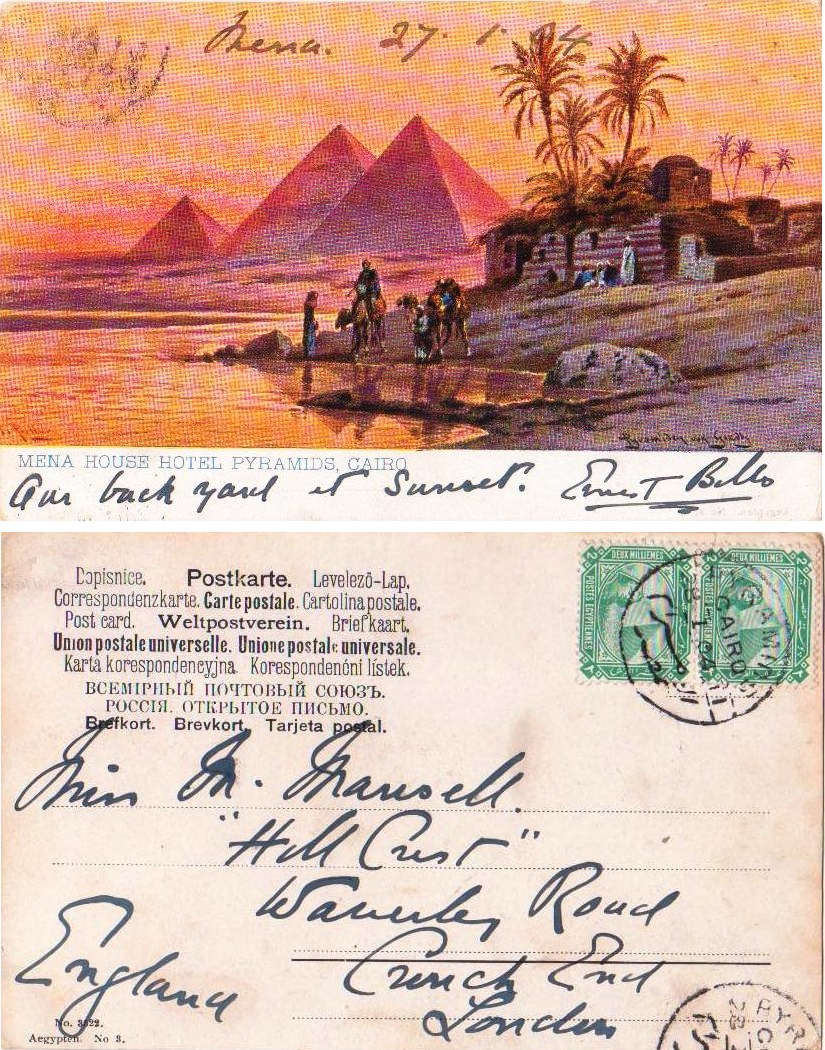 Mena. 27. 1. 04
MENA HOUSE HOTEL PYRAMIDS, CAIRO
Our back yard at Sunset. Ernest Bells
Dopisnice. Postkarte. Levelező-Lap.
Correspondenzkarte. Carte postale. Cartolina postale.
Post card. Weltpostverein. Briefkaart.
Union postale universelle. Unione postale universale.
Karta korespondencyjna. Korespondenční lístek.
ВСЕМІРНЫЙ ПОЧТОВЫЙ СОЮЗЪ.
РОССІЯ. ОТКРЫТОЕ ПИСЬМО.
Brefkort. Brevkort. Tarjeta postal.
DEUX MILLIEMES DEUX MILLIEMES
POSTES EGYPTIENNES POSTES EGYPTIENNES
CAIRO
Miss M. Mansell.
"Hill Crest"
Waverley Road
Crouch End
London
England
No. 3322.
Aegypten. No 3.